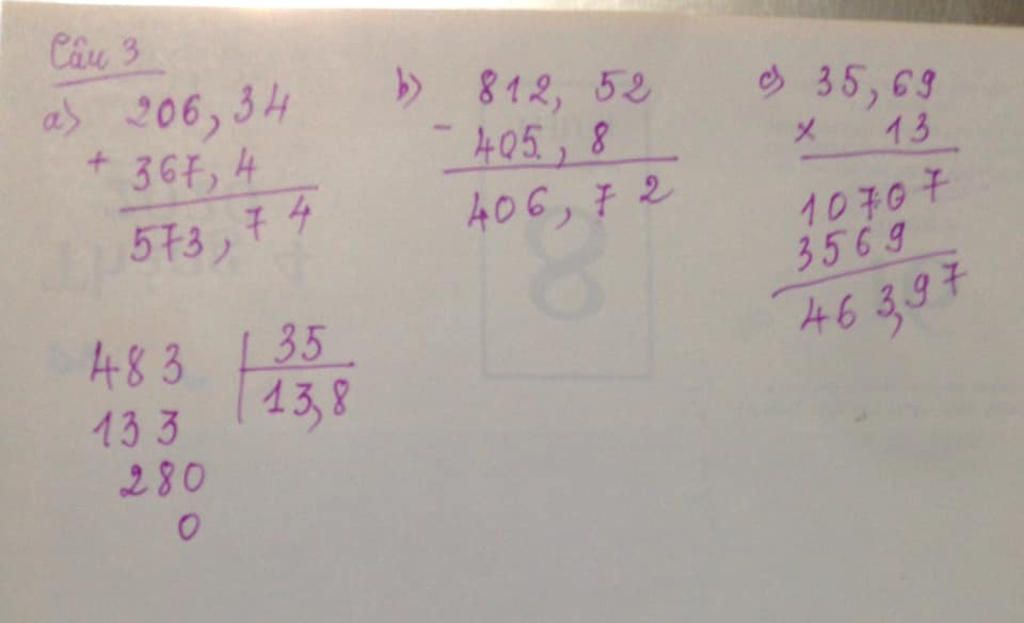 Câu 3
a) 206,34
+ 367,4
573,74
b) 812,52
- 405,8
406,72
c) 35,69
x 13
10707
3569
463,97
483 35
133 13,8
280
0